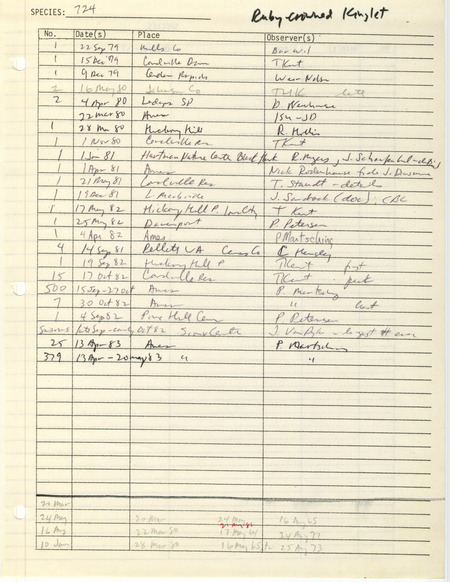 SPECIES: 724 Ruby-crowned Kinglet
No. Date(s) Place Observer(s)
1 22 Sep 79 Mills Co
1 15 Dec 79 Coralville Dam T Kent
1 9 Dec 79 Cedar Rapids
2 16 May 80 Johnson Co THK late
2 4 Apr 80 Ledges SP D Newhouse
22 Mar 80 Ames ISU-JD
1 28 Mar 80 Hickory Hill R Hollis
1 1 Nov 80 Coralville Res TKent
1 1 Jan 81 Hartman Nature Center Black Hawk R. Myers, J. Schaufenbuel-details
1 1 Apr 81 Ames Nick Rodenhouse fide J. Dinsmore
1 21 May 81 Coralville Res T. Staudt - details
1 19 Dec 81 L Macbride J. Sandrock (doc), CBC
1 17 May 82 Hickory Hill P. Iowa City T Kent
1 25 May 82 Davenport P. Petersen
1 4 Apr 82 Ames P Martsching
4 14 Sep 81 Rellets WA Cerro Co C
1 19 Sep 82 Hickory Hill P TKent first
15 17 Oct 82 Coralville Res TKent peak
500 15 Sep-27 Oct Ames P. Martsching
7 30 Oct 82 Ames " last
1 4 Sep 82 Pine Hill Cem P. Petersen
late Sep-early Oct 82 Sioux Center J Van Dyk - largest # ever
25 13 Apr 83 Ames P. Martsching
379 13 Apr-20 May 83 " "
24 May 20 Mar 24 May 16 May 65
16 Aug 22 Mar 80 17 May 64 24 Aug 77
10 Jan 28 Mar 80 16 May 65 25 Aug 73